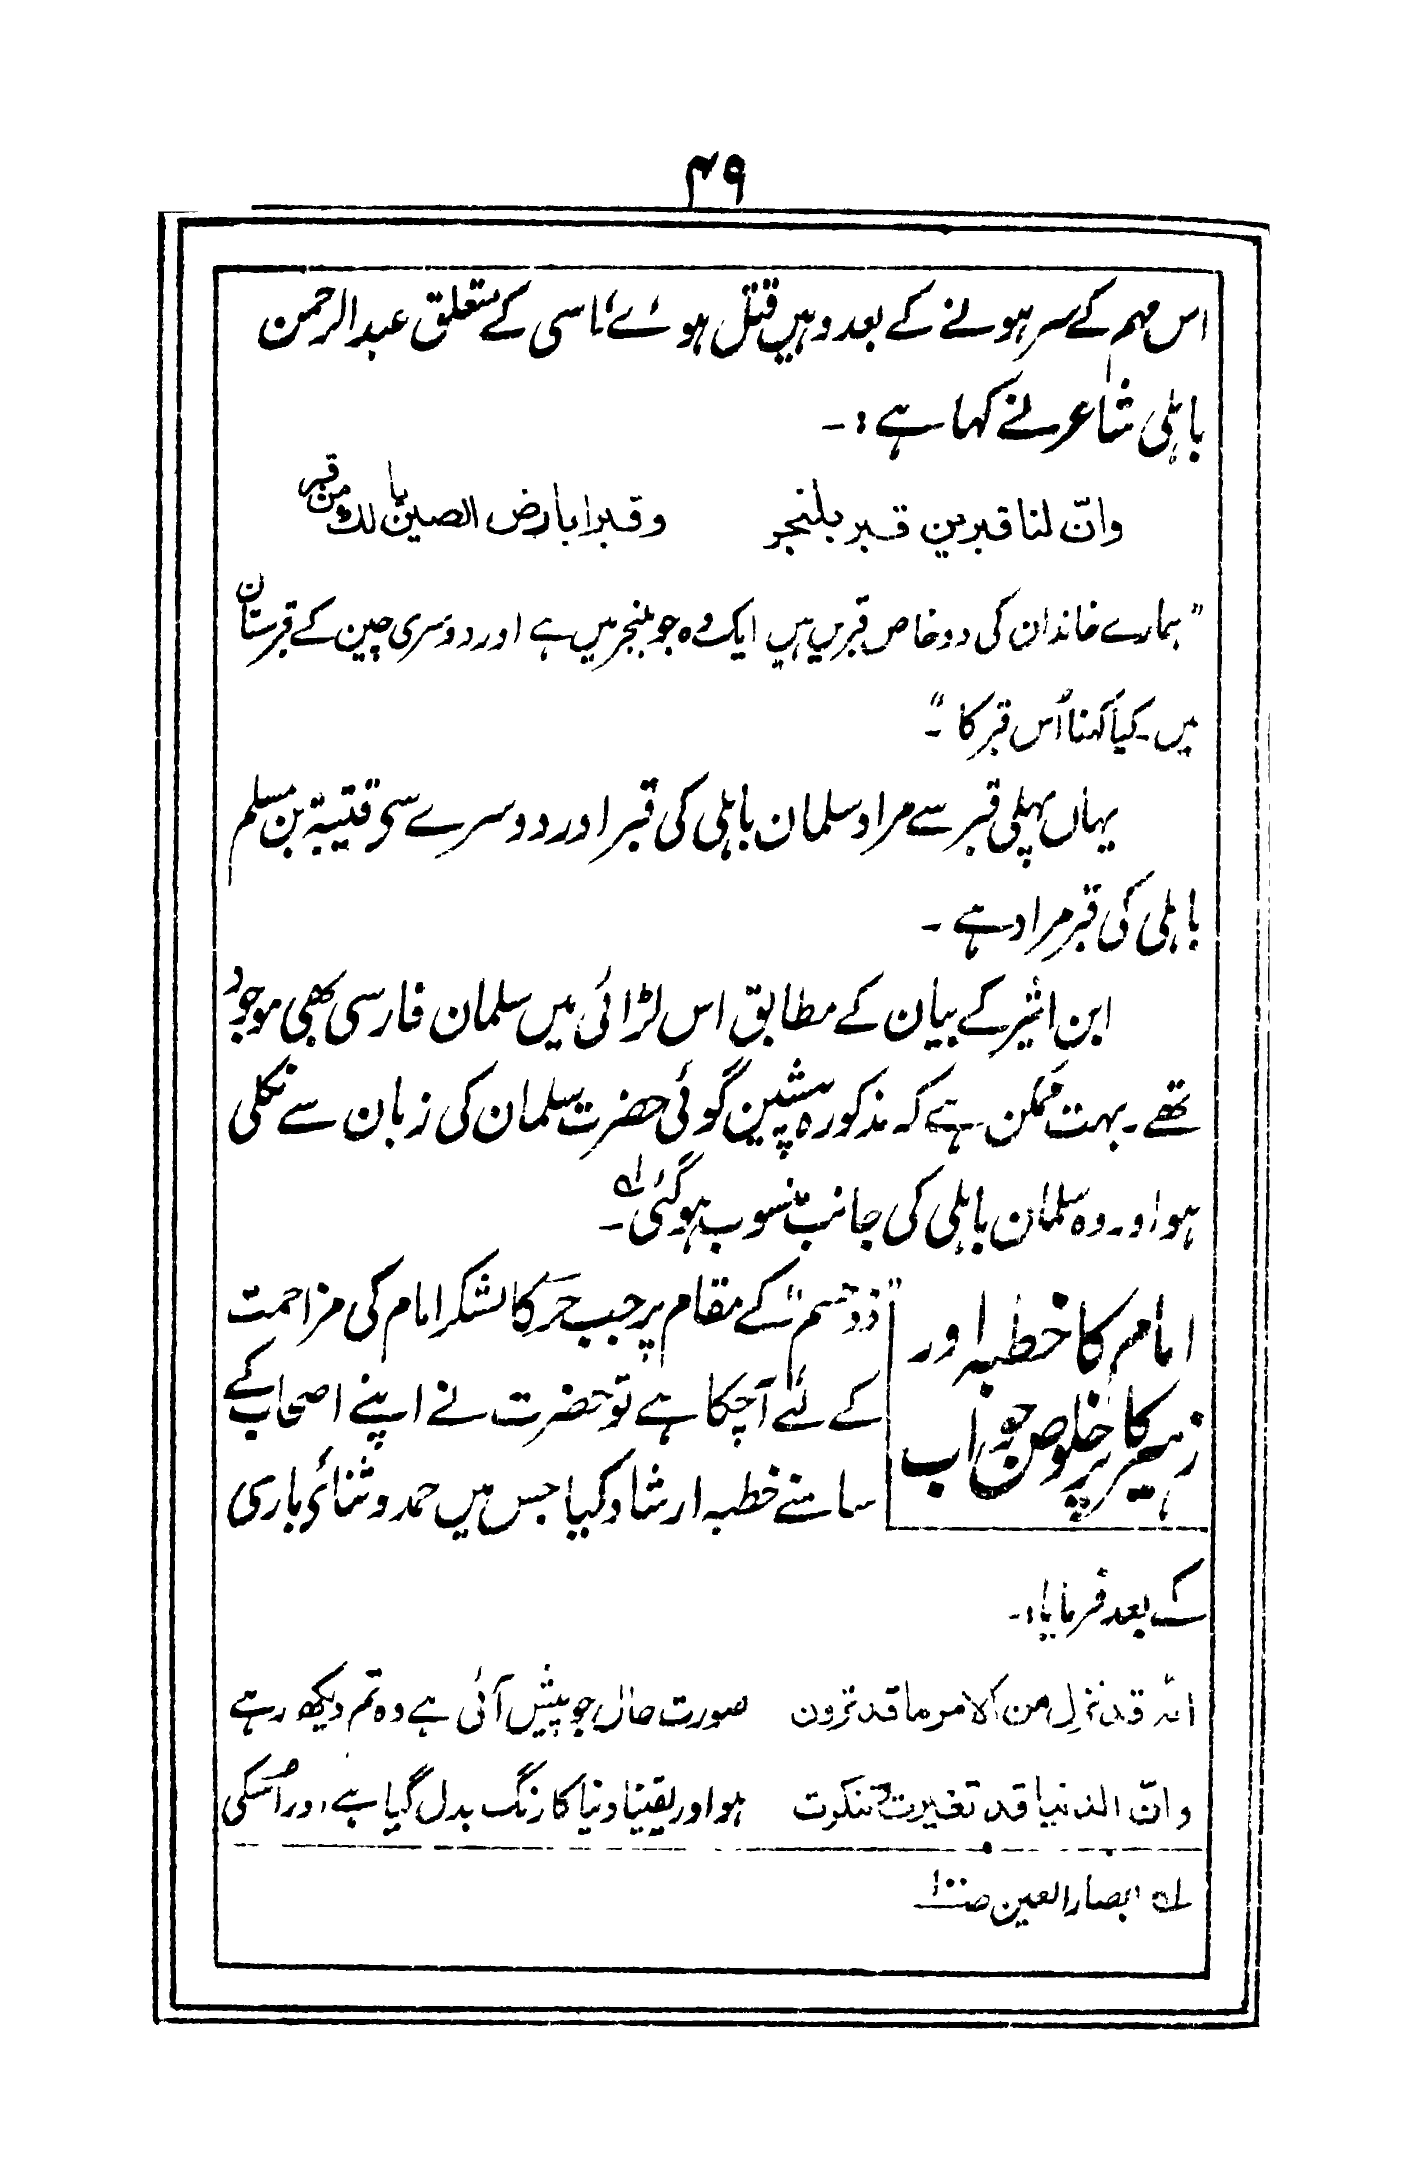 ۴۹
اس مہم کے سر ہونے کے بعد وہیں قتل ہوئے، اسی کے متعلق عبدالرحمن
باہلی شاعر نے کہا ہے :۔
وانّ لنا قبرین قبر بلنجر وقبرا بارض الصین یا لك من قبر
"ہمارے خاندان کی دو خاص قبریں ہیں ایک وہ جو بلنجر میں ہے اور دوسری چین کے قبرستان
میں۔ کیا کہنا اُس قبر کا"۔
یہاں پہلی قبر سے مراد سلمان باہلی کی قبر اور دوسرے سے قتیبۃ بن مسلم
باہلی کی قبر مراد ہے۔
ابن اثیر کے بیان کے مطابق اس لڑائی میں سلمان فارسی بھی موجود
تھے۔ بہت ممکن ہے کہ مذکورہ پیشین گوئی حضرت سلمان کی زبان سے نکلی
ہو اور وہ سلمان باہلی کی جانب منسوب ہو گئی لہ۔
امام کا خطبہ اور
زہیر کا پرخلوص جواب
"ذوحسم" کے مقام پر جب حر کا لشکر امام کی مزاحمت
کے لئے آچکا ہے تو حضرت نے اپنے اصحاب کے
سامنے خطبہ ارشاد کیا جس میں حمد و ثنائے باری
کے بعد فرمایا:۔
انہ قد نزل من الامر ما قد ترون صورت حال جو پیش آئی ہے وہ تم دیکھ رہے
وانّ الدنیا قد تغیرت وتنکرت ہو اور یقیناً دنیا کا رنگ بدل گیا ہے اور اسکی
لہ ابصار العین صـ۱۰۰